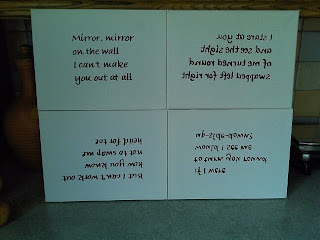 Mirror, mirror
on the wall
I can't make
you out at all
I stare at you
and see the sight
of me turned round
swapped left for right
But I can't work out
how you know
not to swap me
head for toe
If I were
to turn you round
would I see me
up-side-down?